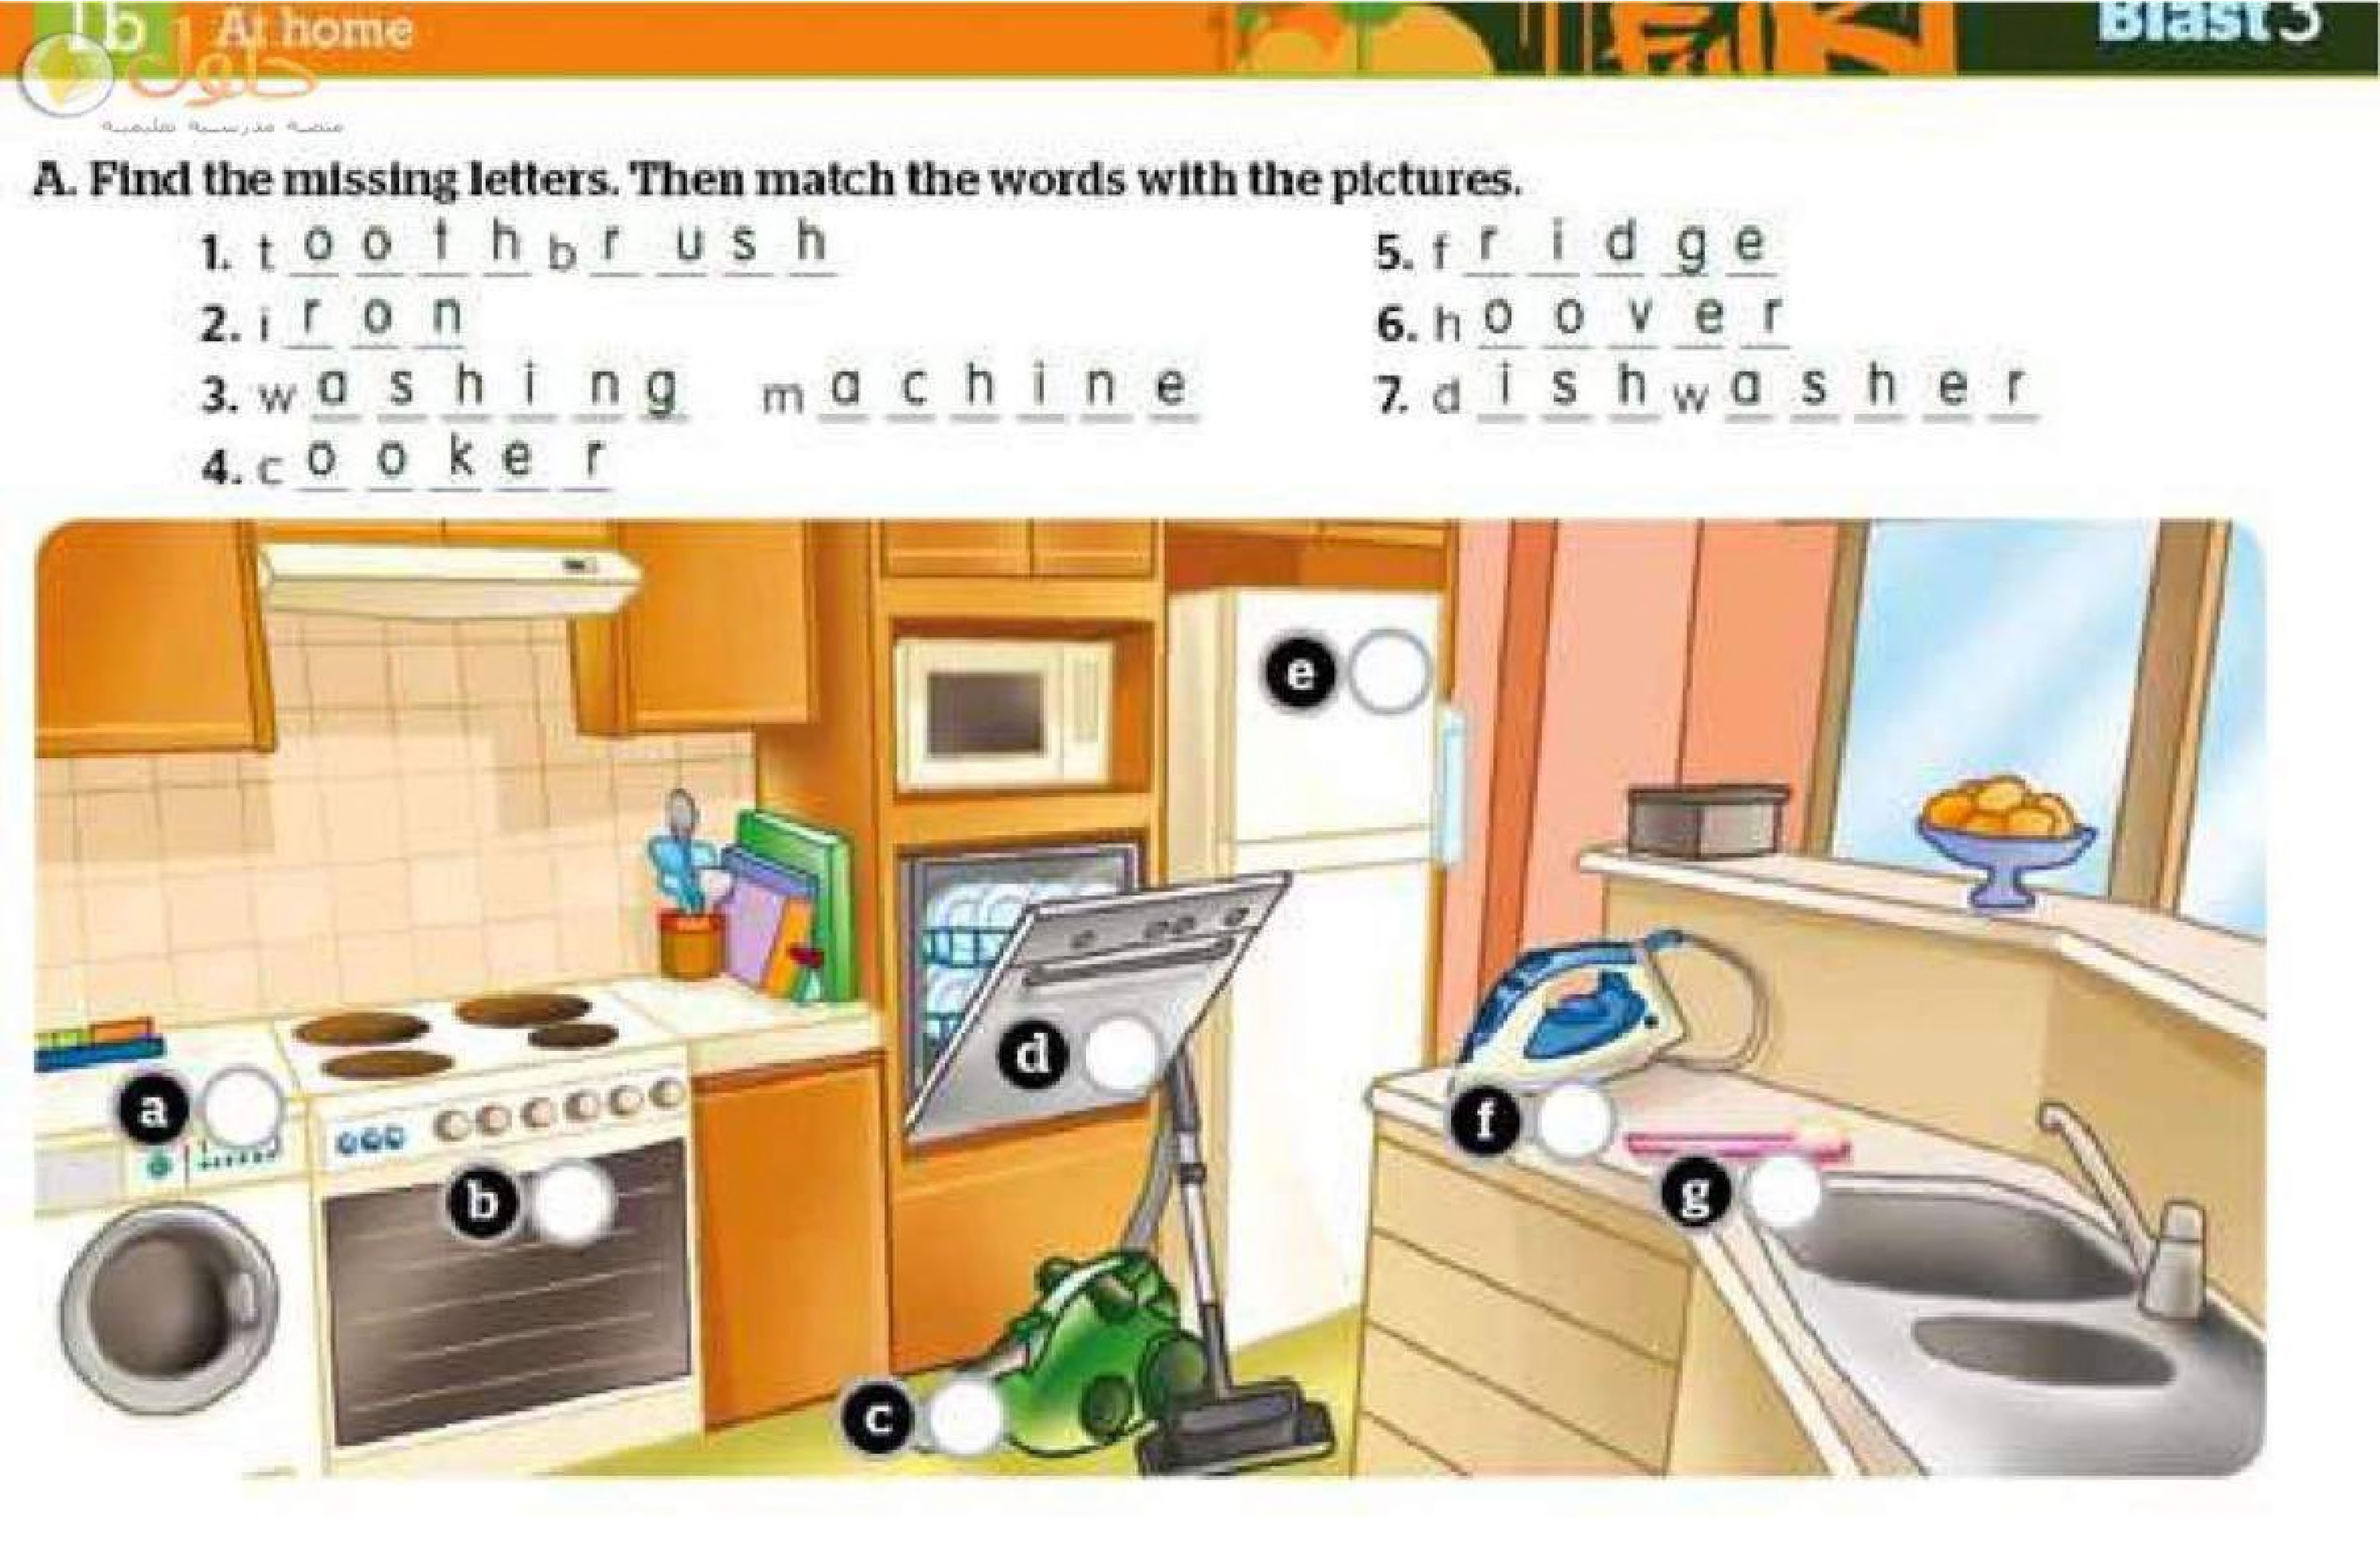 1b At home Blast 3
حلول
منصة مدرسية تعليمية
A. Find the missing letters. Then match the words with the pictures.
1. toothbrush
2. iron
3. washing machine
4. cooker
5. fridge
6. hoover
7. dishwasher
e
d
a
f
b
g
c